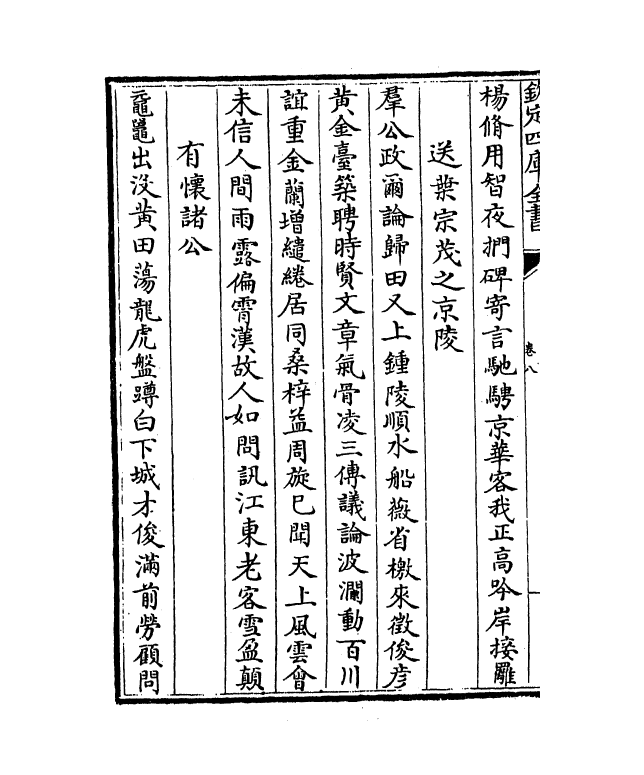 欽定四庫全書
卷八
楊脩用智夜捫碑寄言馳騁京華客我正高吟岸接䍦
送葉宗茂之京陵
羣公政爾論歸田又上鍾陵順水船薇省檄來徵俊彦
黄金臺築聘時賢文章氣骨凌三傳議論波瀾動百川
誼重金蘭增繾綣居同桑梓益周旋已聞天上風雲會
未信人間雨露偏霄漢故人如問訊江東老客雪盈顛
有懷諸公
黿鼉出没黄田蕩龍虎盤蹲白下城才俊滿前勞顧問